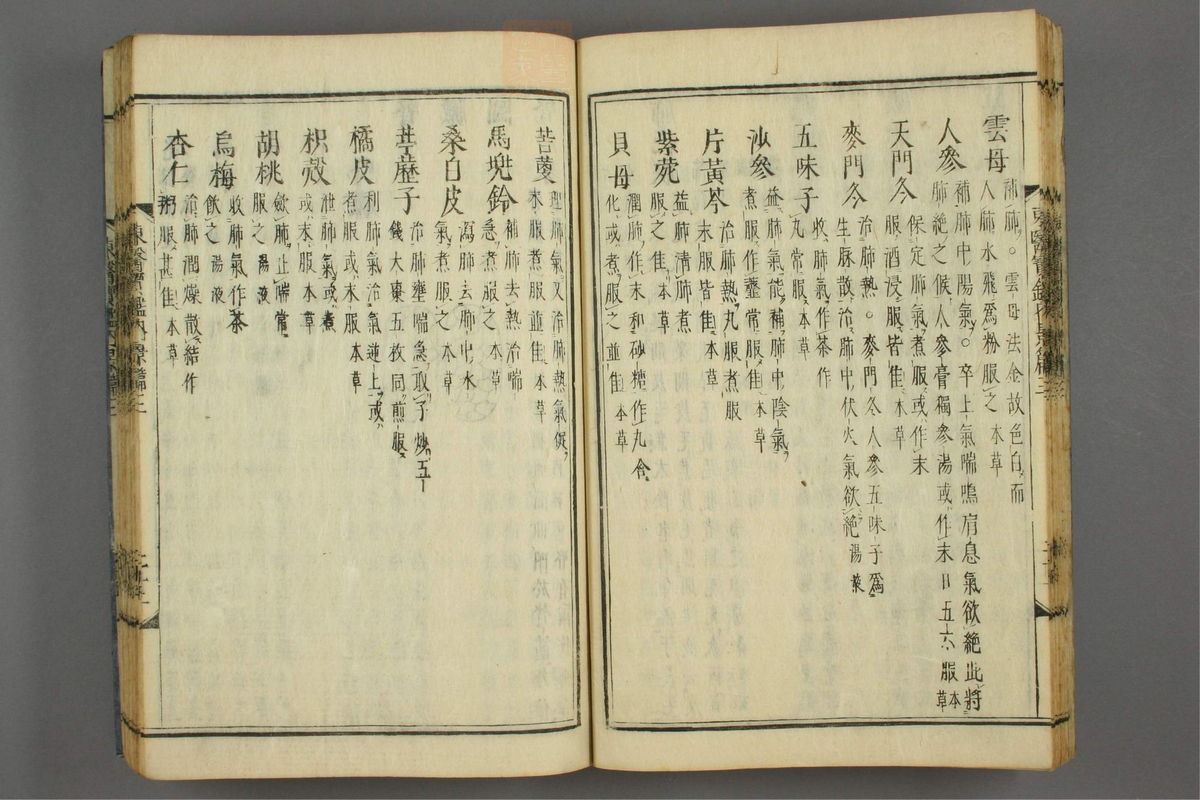 雲母
補肺。雲母法金故色白而
入肺水飛爲粉服之本草
人參
補肺中陽氣。卒上氣喘鳴肩息氣欲絶此將
肺絶之候人參膏獨參湯或作末日五六服本草
天門冬
保定肺氣煮服或作末
服酒浸服皆佳本草
麥門冬
治肺熱。麥門冬人參五味子爲
生脈散治肺中伏火氣欲絶湯藥
五味子
收肺氣作茶作
丸常服本草
沙參
益肺氣能補肺中陰氣
煮服作虀常服佳本草
片黃芩
治肺熱丸服煮服
末服皆佳本草
紫菀
益肺清肺煮
服之佳本草
貝母
潤肺作末和砂糖作丸含
化或煮服之並佳本草
苦蔞
理肺氣又治肺熱氣促
末服煮服並佳本草
馬兜鈴
補肺去熱治喘
急煮服之本草
桑白皮
瀉肺去肺中水
氣煮服之本草
葶藶子
治肺壅喘急取子炒五
錢大棗五枚同煎服
橘皮
利肺氣治氣逆上或
煮服或末服本草
枳殼
泄肺氣或煮
或末服本草
胡桃
斂肺止喘常
服之湯液
烏梅
收肺氣作茶
飮之湯液
杏仁
治肺潤燥散結作
粥服甚佳本草